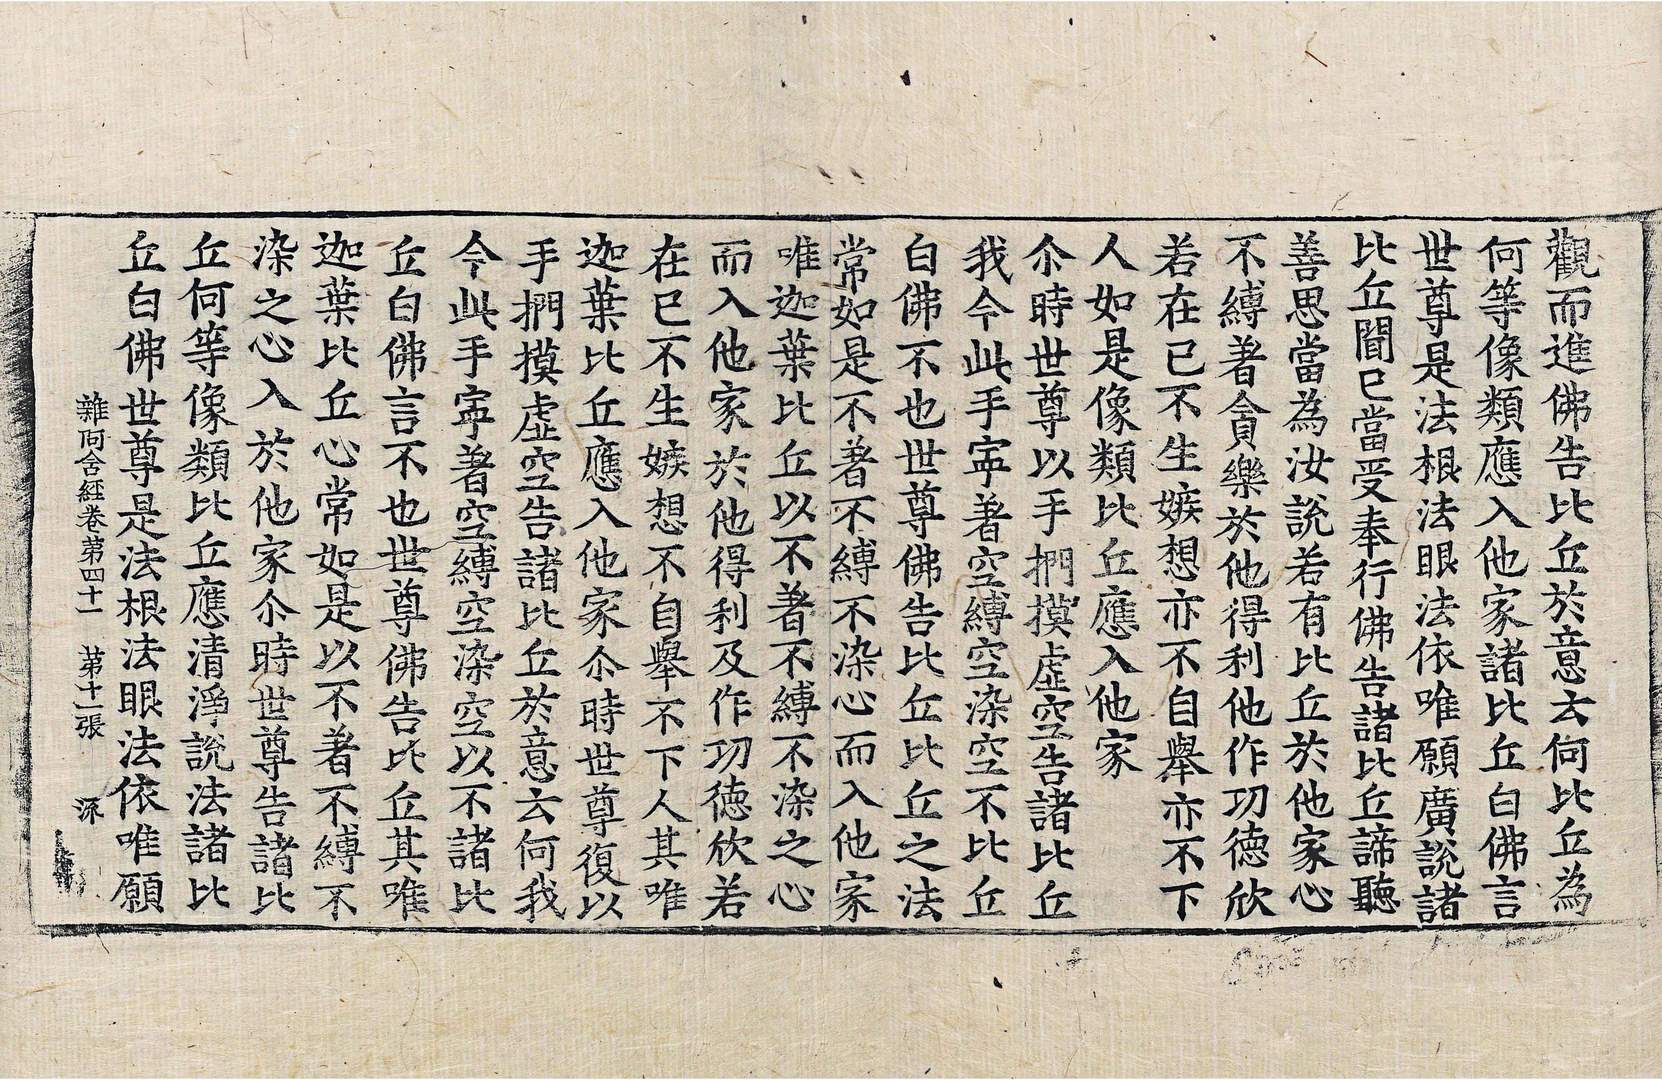 觀而進佛告比丘於意云何比丘為
何等像類應入他家諸比丘白佛言
世尊是法根法眼法依唯願廣說諸
比丘聞已當受奉行佛告諸比丘諦聽
善思當為汝說若有比丘於他家心
不縛著貪樂於他得利他作功德欣
若在已不生嫉想亦不自舉亦不下
人如是像類比丘應入他家
尒時世尊以手捫摸虛空告諸比丘
我今此手寧著空縛空染空不比丘
白佛不也世尊佛告比丘比丘之法
常如是不著不縛不染心而入他家
唯迦葉比丘以不著不縛不染之心
而入他家於他得利及作功德欣若
在已不生嫉想不自舉不下人其唯
迦葉比丘應入他家尒時世尊復以
手捫摸虛空告諸比丘於意云何我
今此手寧著空縛空染空以不諸比
丘白佛言不也世尊佛告比丘其唯
迦葉比丘心常如是以不著不縛不
染之心入於他家尒時世尊告諸比
丘何等像類比丘應清淨說法諸比
丘白佛世尊是法根法眼法依唯願
雜阿含經卷第四十一　第十一張　深